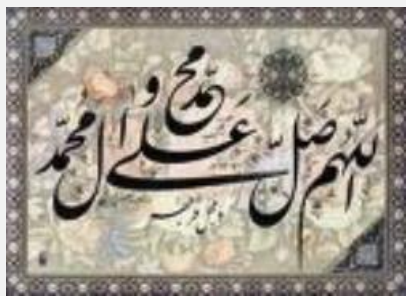 اللهم صل علی محمد و آل محمد
و عجل فرجهم